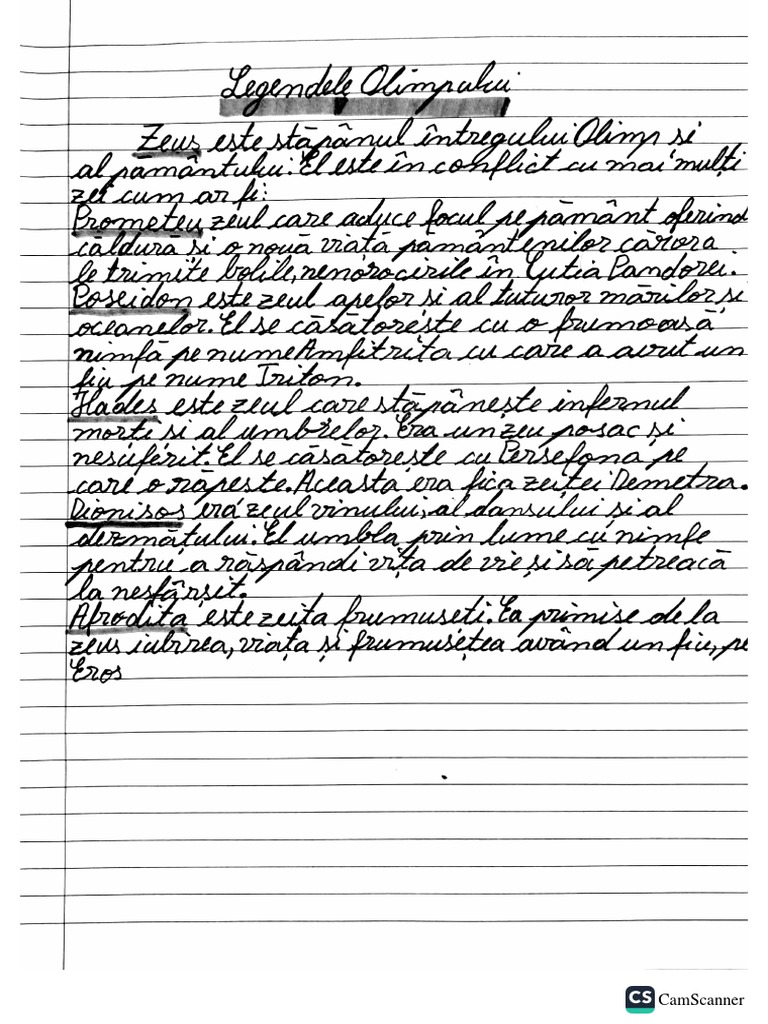 Legendele Olimpului
Zeus este stăpânul întregului Olimp si
al pământului. El este în conflict cu mai mulți
zei cum ar fi:
Prometeu zeul care aduce focul pe pământ oferind
căldură si o nouă viată pământenilor cărora
le trimite bolile, nenorocirile în Cutia Pandorei.
Poseidon este zeul apelor si al tuturor mărilor si
oceanelor. El se căsătorește cu o frumoasă
nimfă pe nume Amfitrita cu care a avut un
fiu pe nume Triton.
Hades este zeul care stăpânește infernul
morti si al umbrelor. Era un zeu posac și
nesuferit. El se căsătorește cu Persefona pe
care o răpeste. Aceasta era fica zeiței Demetra.
Dionisos era zeul vinului, al dansului și al
dezmătului. El umbla prin lume cu nimfe
pentru a răspândi vița de vie și să petreacă
la nesfârsit.
Afrodita este zeita frumuseti. Ea primise de la
zeus iubirea, viața și frumusețea având un fiu, pe
Eros
CS CamScanner